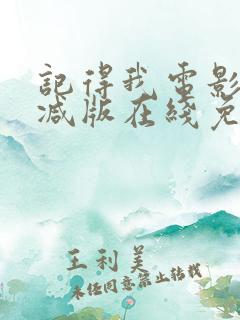 記得我电影
减版在线免
王利美
未经同意禁止转载